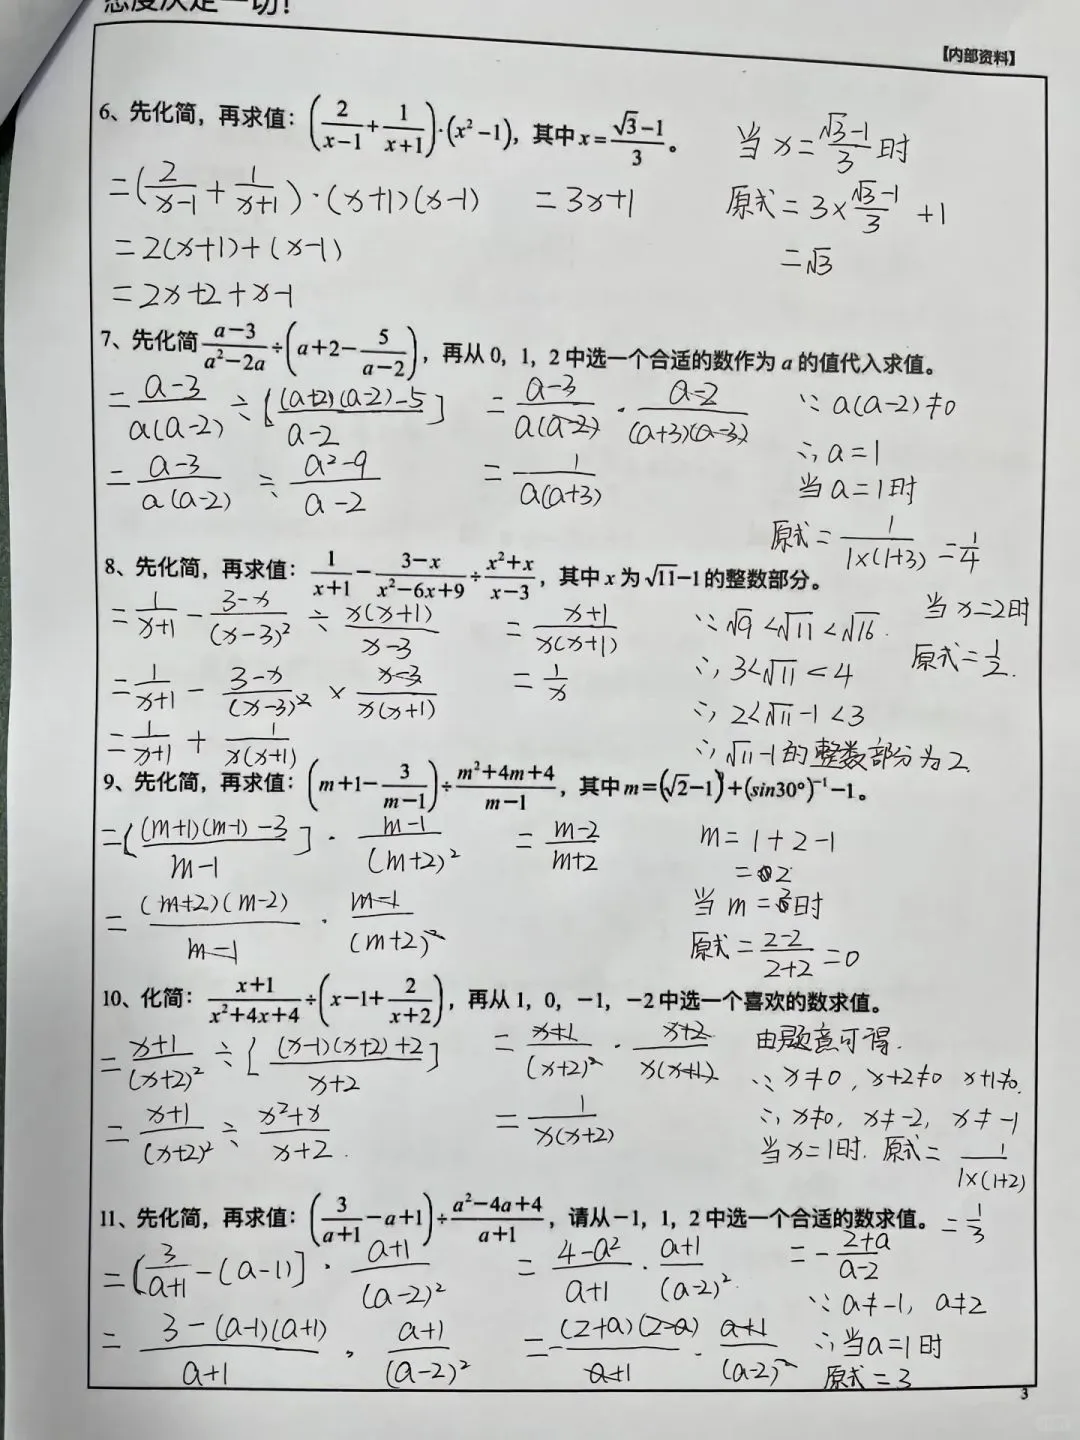 态度决定一切!
【内部资料】
6、先化简，再求值：(2/(x-1)+1/(x+1))·(x²-1)，其中x=(√3-1)/3。
=(2/(x-1)+1/(x+1))·(x+1)(x-1)
=2(x+1)+(x-1)
=2x+2+x-1
=3x+1
当x=(√3-1)/3时
原式=3×(√3-1)/3+1
=√3
7、先化简(a-3)/(a²-2a)÷(a+2-5/(a-2))，再从0，1，2中选一个合适的数作为a的值代入求值。
=(a-3)/(a(a-2))÷[((a+2)(a-2)-5)/(a-2)]
=(a-3)/(a(a-2))÷(a²-9)/(a-2)
=(a-3)/(a(a-2))·(a-2)/((a+3)(a-3))
=1/(a(a+3))
∵a(a-2)≠0
∴a=1
当a=1时
原式=1/(1×(1+3))=1/4
8、先化简，再求值：1/(x+1)-(3-x)/(x²-6x+9)÷(x²+x)/(x-3)，其中x为√11-1的整数部分。
=1/(x+1)-(3-x)/(x-3)²÷x(x+1)/(x-3)
=1/(x+1)-(3-x)/(x-3)²×(x-3)/(x(x+1))
=1/(x+1)+1/(x(x+1))
=(x+1)/(x(x+1))
=1/x
∵√9<√11<√16.
∴3<√11<4
∴2<√11-1<3
∴√11-1的整数部分为2.
当x=2时
原式=1/2.
9、先化简，再求值：(m+1-3/(m-1))÷(m²+4m+4)/(m-1)，其中m=(√2-1)⁰+(sin30°)⁻¹-1。
=[((m+1)(m-1)-3)/(m-1)]·(m-1)/(m+2)²
=((m+2)(m-2))/(m-1)·(m-1)/(m+2)²
=(m-2)/(m+2)
m=1+2-1
=2
当m=2时
原式=(2-2)/(2+2)=0
10、化简：(x+1)/(x²+4x+4)÷(x-1+2/(x+2))，再从1，0，-1，-2中选一个喜欢的数求值。
=(x+1)/(x+2)²÷[((x-1)(x+2)+2)/(x+2)]
=(x+1)/(x+2)²÷(x²+x)/(x+2).
=(x+1)/(x+2)²·(x+2)/(x(x+1))
=1/(x(x+2))
由题意可得.
∵x≠0，x+2≠0 x+1≠0.
∴x≠0，x≠-2，x≠-1
当x=1时.原式=1/(1×(1+2))
=1/3
11、先化简，再求值：(3/(a+1)-a+1)÷(a²-4a+4)/(a+1)，请从-1，1，2中选一个合适的数求值。
=[3/(a+1)-(a-1)]·(a+1)/(a-2)²
=(3-(a-1)(a+1))/(a+1)·(a+1)/(a-2)²
=(4-a²)/(a+1)·(a+1)/(a-2)²
=-((2+a)(2-a))/(a+1)·(a+1)/(a-2)²
=-(2+a)/(a-2)
∵a≠-1，a≠2
∴当a=1时
原式=3
3